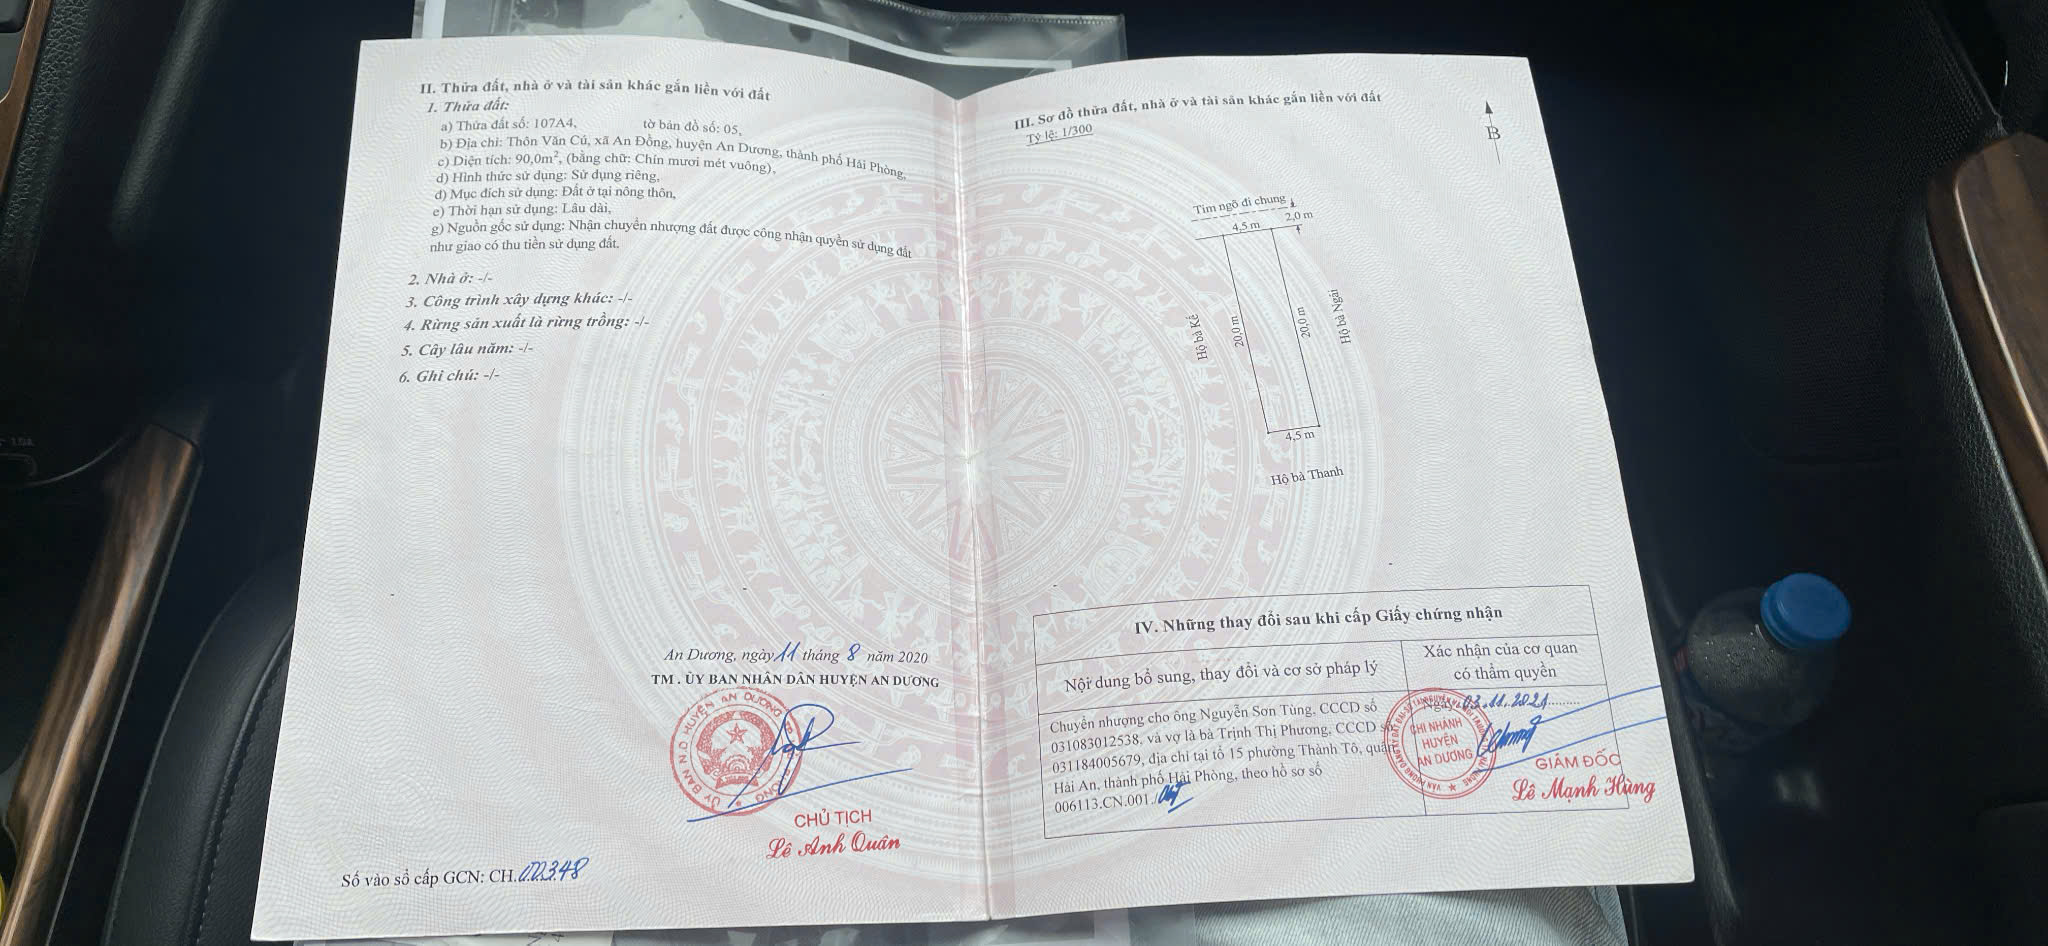 II. Thửa đất, nhà ở và tài sản khác gắn liền với đất
1. Thửa đất:
a) Thửa đất số: 107A4, tờ bản đồ số: 05,
b) Địa chỉ: Thôn Văn Cú, xã An Đồng, huyện An Dương, thành phố Hải Phòng,
c) Diện tích: 90,0m², (bằng chữ: Chín mươi mét vuông),
d) Hình thức sử dụng: Sử dụng riêng,
đ) Mục đích sử dụng: Đất ở tại nông thôn,
e) Thời hạn sử dụng: Lâu dài,
g) Nguồn gốc sử dụng: Nhận chuyển nhượng đất được công nhận quyền sử dụng đất
như giao có thu tiền sử dụng đất.
2. Nhà ở: -/-
3. Công trình xây dựng khác: -/-
4. Rừng sản xuất là rừng trồng: -/-
5. Cây lâu năm: -/-
6. Ghi chú: -/-
An Dương, ngày 11 tháng 8 năm 2020
TM . ỦY BAN NHÂN DÂN HUYỆN AN DƯƠNG
ỦY BAN N.D HUYỆN AN DƯƠNG
CHỦ TỊCH
Lê Anh Quân
Số vào sổ cấp GCN: CH.00348
III. Sơ đồ thửa đất, nhà ở và tài sản khác gắn liền với đất
Tỷ lệ: 1/300
B
Tim ngõ đi chung
2,0 m
4,5 m
Hộ bà Kế
20,0 m
20,0 m
Hộ bà Ngái
4,5 m
Hộ bà Thanh
IV. Những thay đổi sau khi cấp Giấy chứng nhận
Nội dung bổ sung, thay đổi và cơ sở pháp lý
Xác nhận của cơ quan
có thẩm quyền
Chuyển nhượng cho ông Nguyễn Sơn Tùng, CCCD số
031083012538, và vợ là bà Trịnh Thị Phương, CCCD số
031184005679, địa chỉ tại tổ 15 phường Thành Tô, quận
Hải An, thành phố Hải Phòng, theo hồ sơ số
006113.CN.001./
Ngày 03.11.2021
CHI NHÁNH
HUYỆN
AN DƯƠNG
GIÁM ĐỐC
Lê Mạnh Hùng